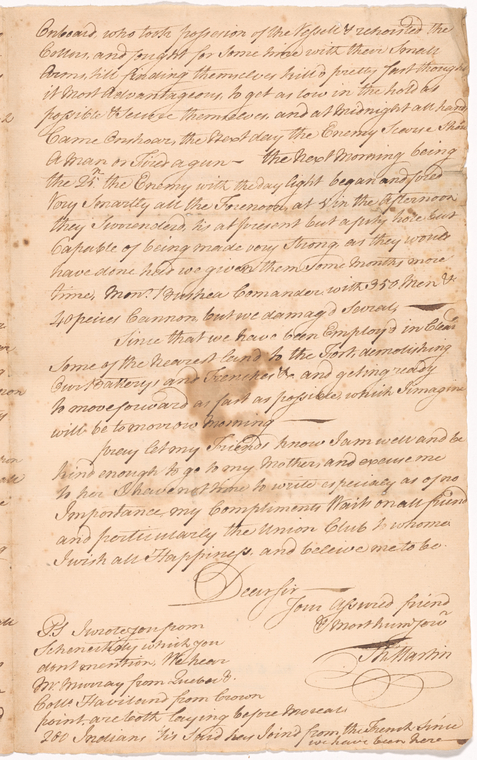 Onboard who took possession of the Vessell & rehoisted the
Collours, and fought for Some time with their Small
Arms, till finding themselves kill'd pretty fast thought
it Most Advantageous, to get as low in the hold as
possible & Secure themselves, and at Midnight all hands
Came Onshoar, the Next day the Enemy Scarce Show'd
A Man or Fired a gun – the Next Morning being
the 25th. the Enemy with the day light began and fired
Very Smartly all the Forenoon, at 5 in the Afternoon
they Surrenderd, tis at present but a pity hole but
Capable of being made very Strong, as they would
have done had we given them Some Months more
time, Monr. Comander with 350 Men &
40 peices Cannon but we damag'd Several, —
Since that we have been Employ'd in Clearg
Some of the Nearest land to the Fort demolishing
Our Batterys and Trenches &c. and geting ready
to move forward as fast as possible, which I imagine
will be to morrow morning —
pray let my Friends know I am well and be
kind enough to go to my Mother, and excuse me
to her I have not time to write especialy as of no
Importance, my Compliments Wait on all friends
and perticularly the Union Club to whome
I wish all Happiness, and beleive me to be.
Dear Sir
Your Assured friend
& Most hum
Martin
PS I wrote you from
Schenectidy which you
dont mention. We hear
Mr. Murray from Quebec &
Coll. Haviland from Crown
point, are both Laying before Moreal
200 Indians tis Said has Joind from the French Since
we have been here